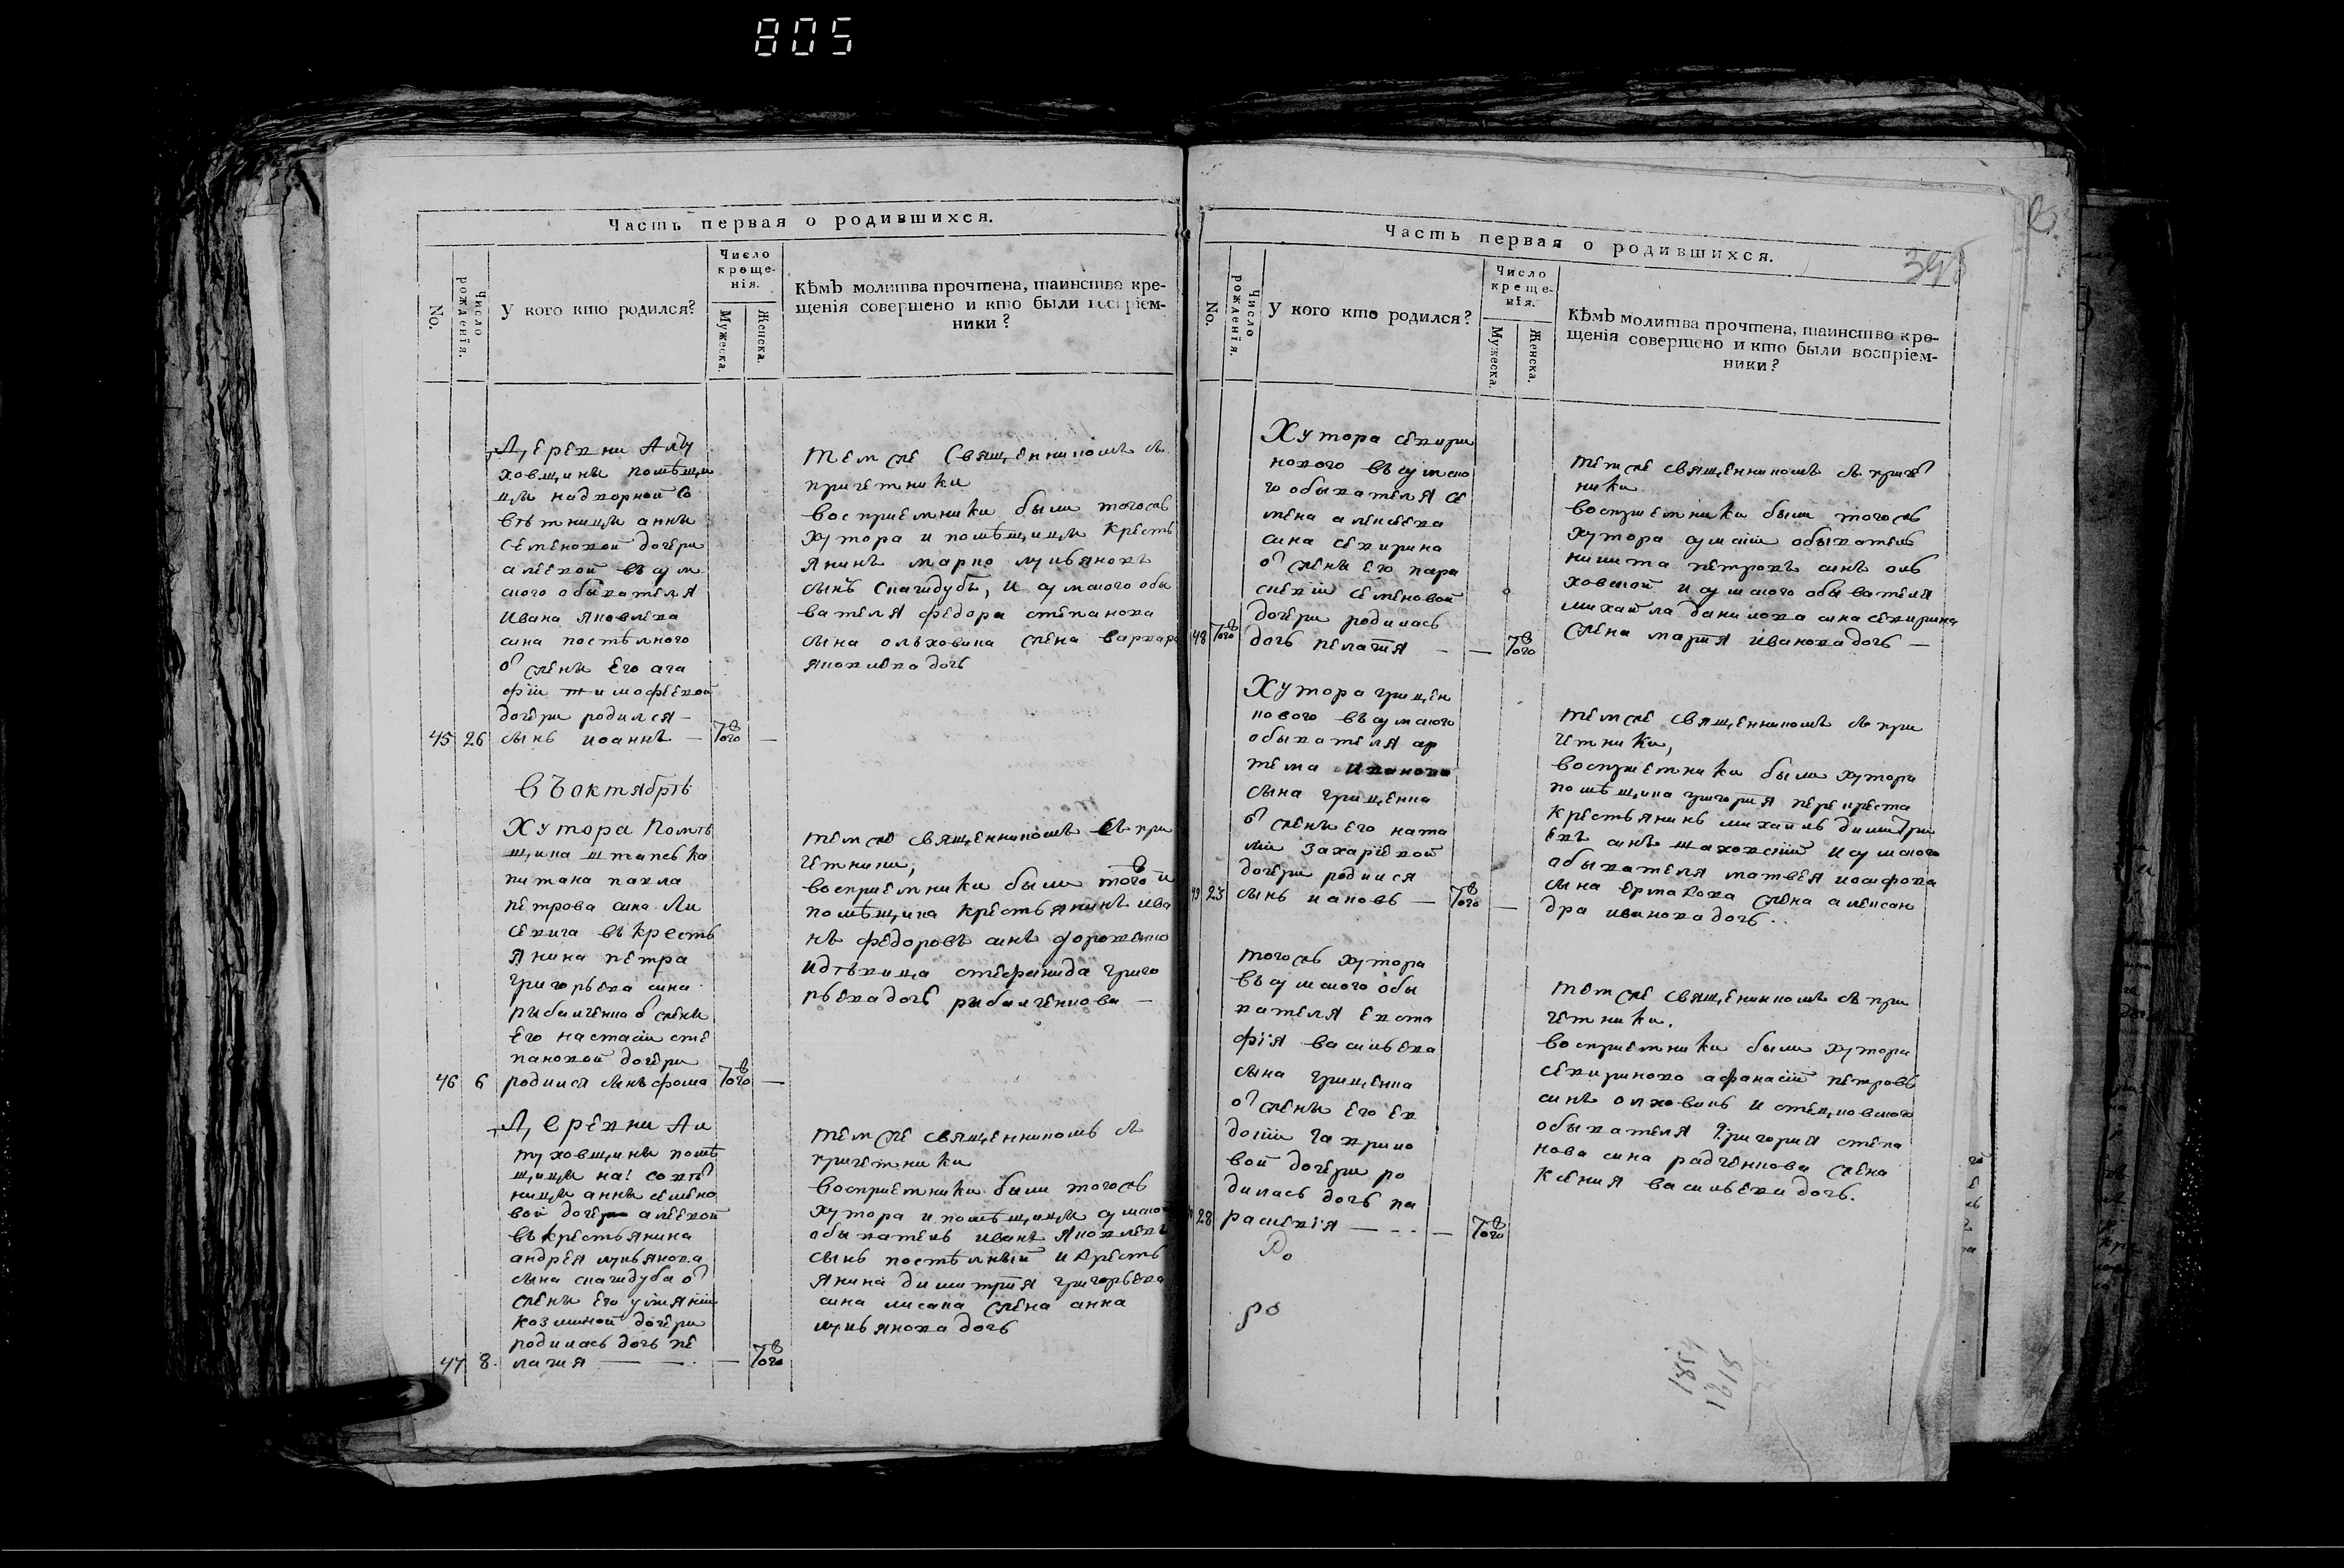 805
Часть первая о родившихся.
No.
Число рожденїя.
У кого кто родился?
Число креще-
нія.
Мужеска.
Женска.
Кѣмъ молитва прочтена, таинство кре-
щенія совершено и кто были воспріем-
ники?
Деревни
ховщины помѣщи
цы надворной Со
вѣтницы анны
Семеновой дочери
Ивана Яковлева
сина постѣлного
его ага
фіи тимофеевой
дочери родился —
45 26 сынъ иоаннъ — —
темже Священникомъ съ
причетники
восприемники были тогожъ
хутора и помѣщицы кресть
янинъ марко лукьяновъ
сынъ Спагидубъ, и
вателя федора степанова
сына ольховика жена варвара
яковлева дочь
Въ октябрѣ
Хутора Помѣ
щика штапсъ ка
питана павла
петрова сина Ли
севича въ кресть
янина петра
григорьева сина
рыбалченка
его настасіи сте
пановой дочери
46 6 родился сынъ фома —
темже священникомъ съ при
четники,
восприемники были того и
помѣщика крестьянинъ ива
нъ федоровъ синъ
и дѣвица стефанида григо
рьева дочь рыбалченкова —
Деревни Ал
туховщины помѣ
щицы
ницы анны семено
вой дочери алеевой
въ крестьянина
андрея лукьянова
сына спагидуба
жены его улияніи
козминой дочери
родилась дочь пе
47 8. лагия — — —
темже священникомъ съ
причетники
восприемники были тогожъ
хутора и помѣщицы
обыватель иванъ Яковлевъ
сынъ постѣлный и кресть
янина димитрия григорьева
сина лисака жена анна
лукьянова дочь
Часть первая о родившихся.
No.
Число рожденїя.
У кого кто родился?
Число креще-
нія.
Мужеска.
Женска.
Кѣмъ молитва прочтена, таинство кре-
щенія совершено и кто были воспріем-
ники?
Хутора секири
нового
го обывателя се
мена алексеева
сина секирина
жены его пара
скевіи семеновой
дочери родилась
48 дочь пелагия — —
темже священникомъ съ приче
ники
восприемники были тогожъ
хутора обыватель
никита петровъ синъ оль
ховской и обывателя
михайла данилова сина секирина
жена мария иванова дочь —
Хутора грищен
кового
обывателя ар
тема иванова
сына грищенка
жены его ната
ліи захаріевой
дочери родился
23 сынъ иаковъ — —
темже священникомъ съ при
четники,
восприемники были хутора
помѣщика григория перекреста
крестьянинъ михаилъ димитри
евъ синъ шаховскій и
обывателя матвея иосифова
сына ермакова жена алексан
дра иванова дочь.
тогожъ хутора
обы
вателя евста
фія васильева
сына грищенка
жены его ев
докіи гаврило
вой дочери ро
дилась дочь па
28 раскевія — — —
Ро
ро
темже священникомъ съ при
четники.
восприемники были хутора
секиринова афанасій петровъ
синъ олховикъ и
обывателя Григория степа
нова сина радченкова жена
ксения васильева дочь.
1854
1818